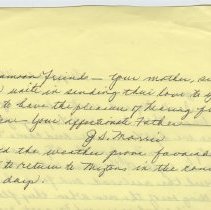 friends – Your mother, si
unite in sending their love to y
to have the pleasure of hearing f
Your affectionate Father
J. S. Morris
the weather prove favorab
to return to Milton in the cour
days.